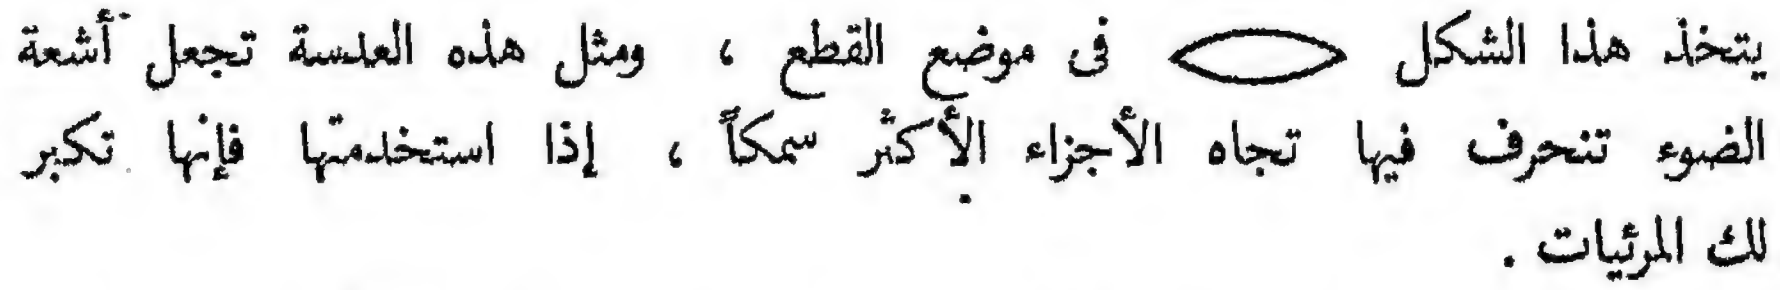 يتخذ هذا الشكل في موضع القطع ، ومثل هذه العدسة تجعل أشعة
الضوء تنحرف فيها تجاه الأجزاء الأكثر سمكاً ، إذا استخدمتها فإنها تكبر
لك المرئيات .